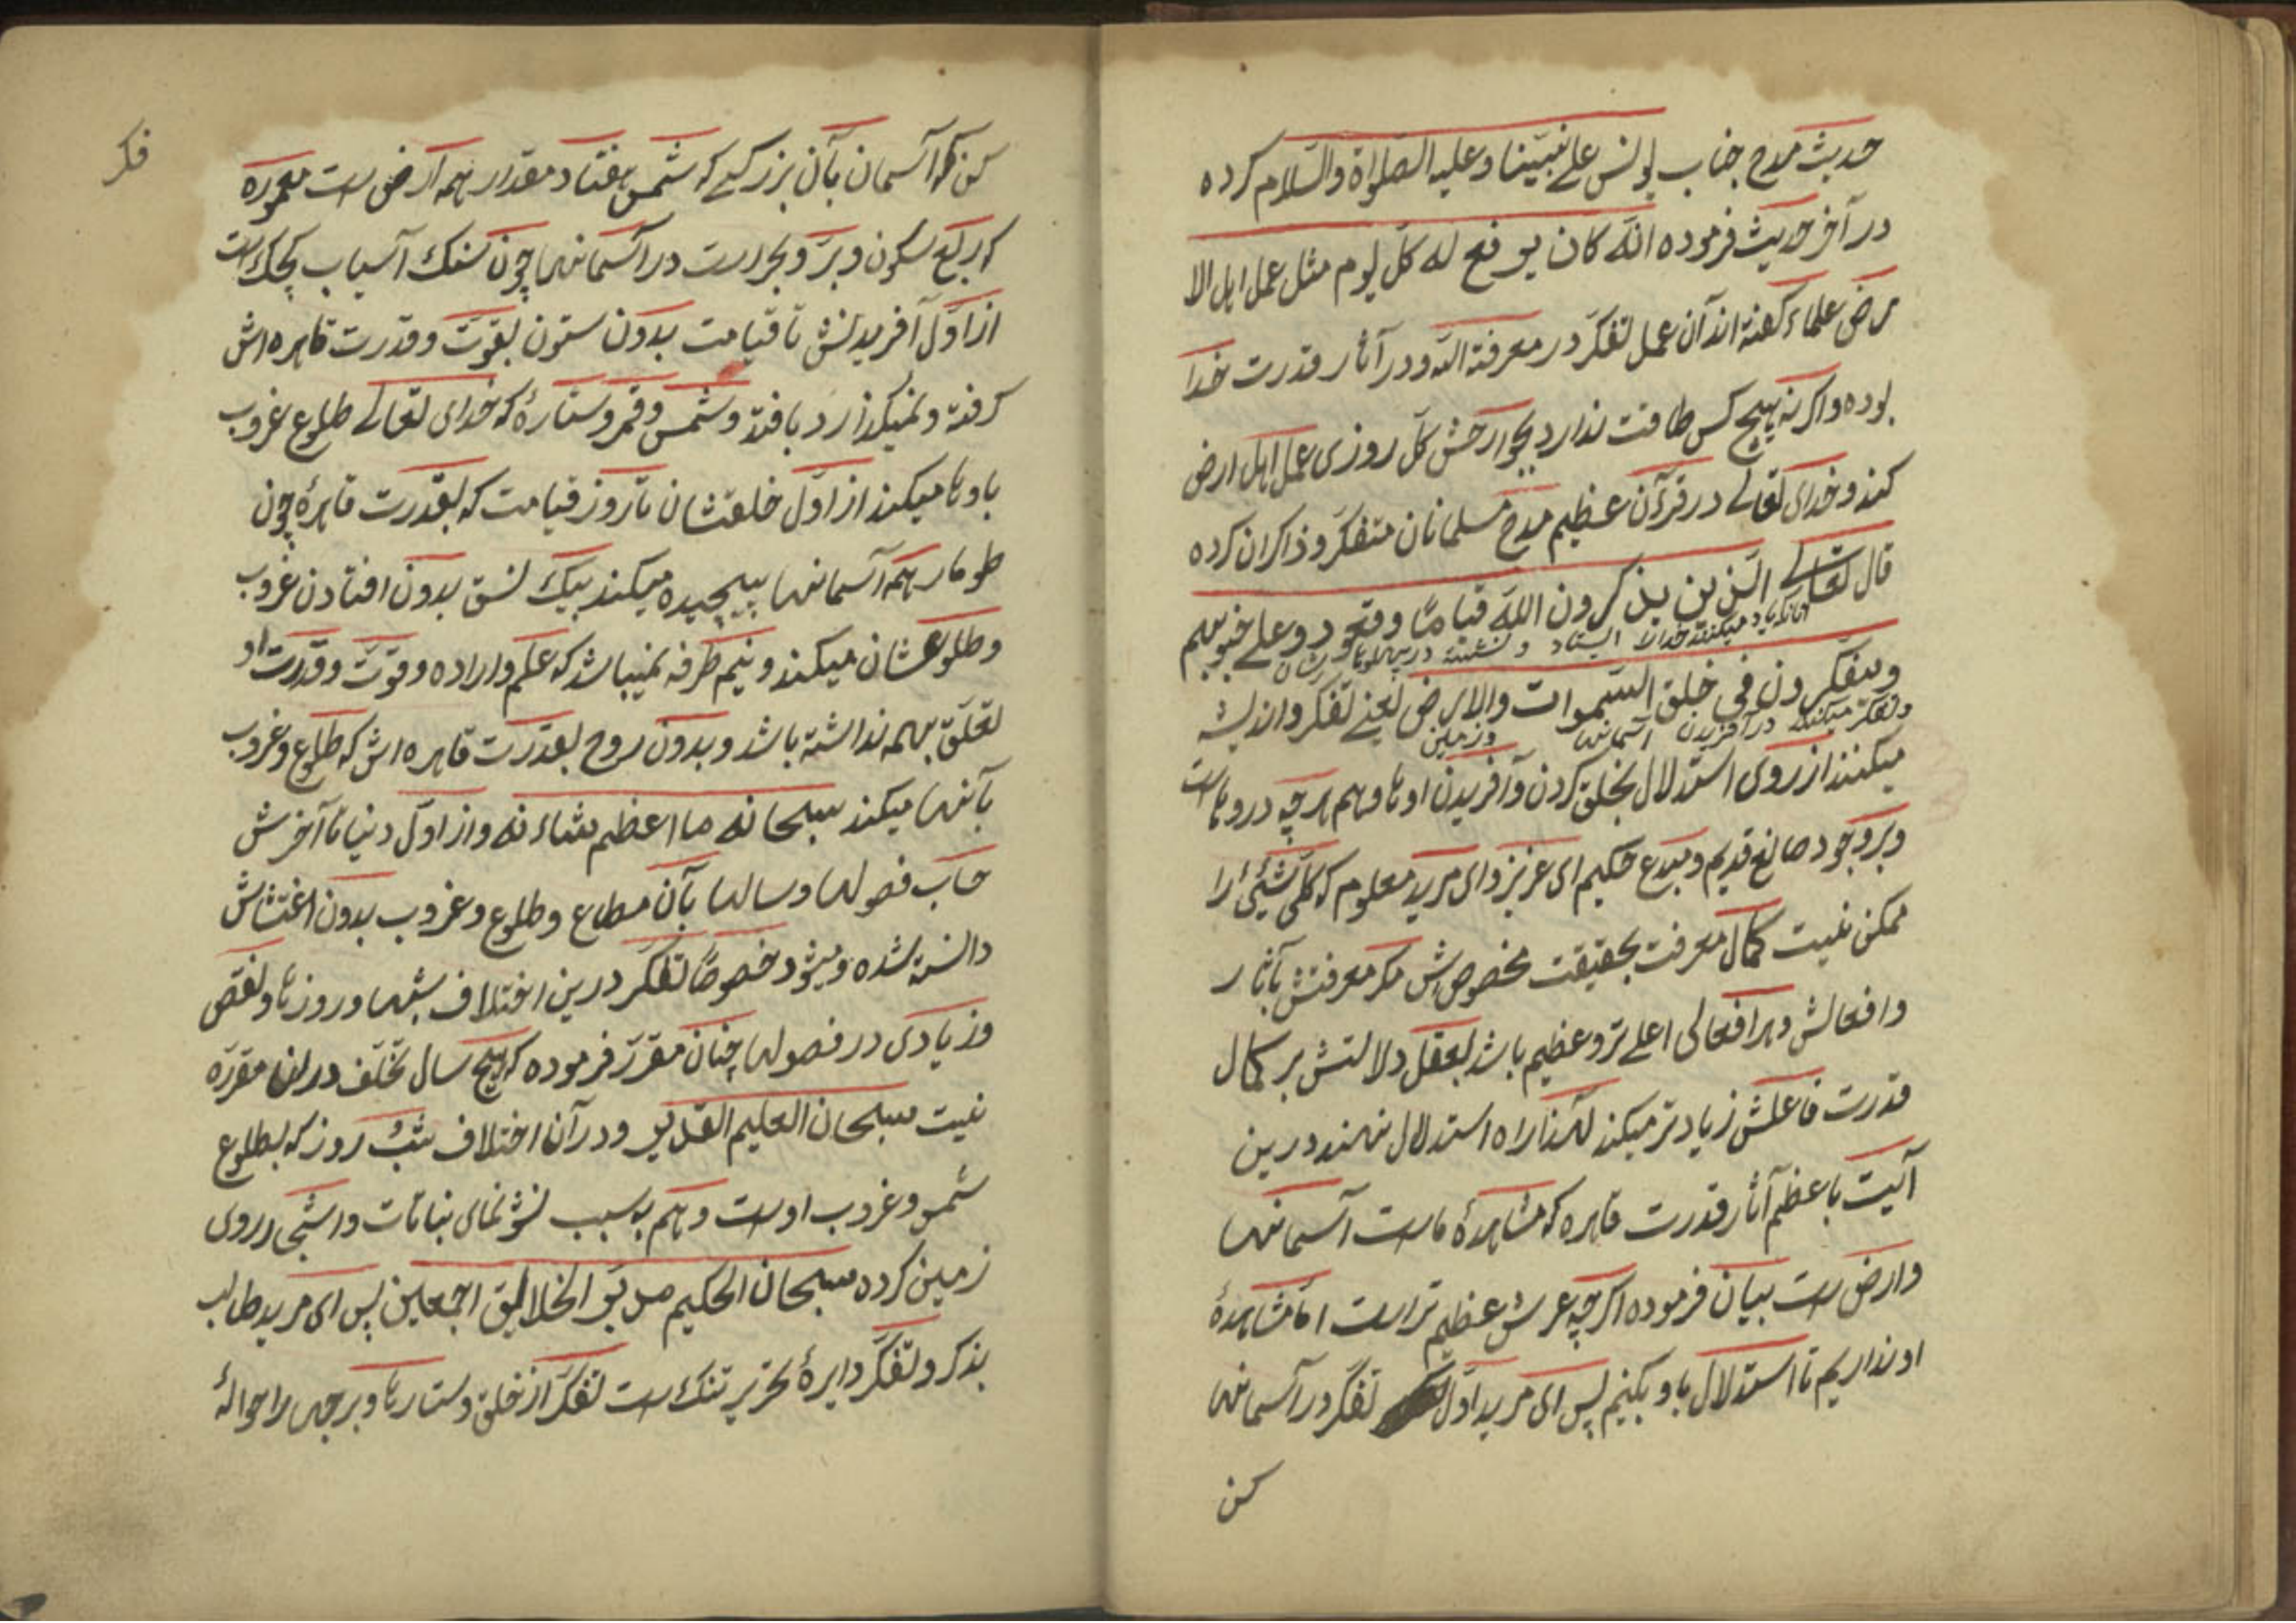 حدیث مدح جناب یونس علی نبیّنا و علیه الصّلوٰة والسّلام کرده
در آخر حدیث فرموده انّه کان یرفع له کلّ یوم مثل عمل اهل الا
رض علماء گفته‌اند آن عمل تفکّر در معرفة اللّه و در آثار قدرت خدا
بوده و اگر نه هیچ کس طاقت ندارد بجوارحش کلّ روزی عمل اهل ارض
کند و خدای تعالے در قرآن عظیم مدح مسلمانان متفکّر و ذاکران کرده
قال تعالے الّذین یذکرون اللّه قیامًا وقعودا وعلے جنوبهم
آنانکه یاد میکنند خدا را ایستاده و نشسته در پهلوهاشان
ویتفکرون فی خلق السّموات والارض یعنے تفکّر و اندیشه
و تفکر میکنند در آفریدن آسمانها و زمین
میکنند از روی استدلال بخلق کردن و آفریدن اوها و هم هر چه در وهاست
و بر وجود صانع قدیم و مبدع حکیم ای عزیز و ای مرید معلوم که کلّی شیئی را
ممکن نیست کمال معرفت بحقیقت مخصوصش مگر معرفتش بآثار
و افعالش و هر افعالی اعلے تر و عظیم باشد بعقل دلالتش بر کمال
قدرت فاعلش زیادتر میکند لهذا راه استدلال نهند درین
آیت باعظم آثار قدرت قاهره که مشاهدهٔ ماست آسمانها
و ارض است بیان فرموده اگرچه عرش عظیم تر است امّا مشاهدهٔ
او نداریم تا استدلال باو بکنیم پس ای مرید اوّل تفکّر در آسمانها
کن
فکر
کن که آسمان بآن بزرگے که شمس هفتاد مقدار همه ارض است معموره
که ربع سکون و برّ و بحر است در آسمانها چون سنگ آسیاب کچک است
از اوّل آفریدنش تا قیامت بدون ستون بقوّت و قدرت قاهره‌اش
گرفته و نمیگذارد بافتد و شمس و قمر و ستارهٔ که خدای تعالے طلوع غروب
باوها میکند از اوّل خلقتشان تا روز قیامت که بقدرت قاهرهٔ چون
طومار همه آسمانها پیچیده میکند بیک نسق بدون افتادن غروب
و طلوعشان میکند و نیم طرفه نمیباشد که علم و اراده و قوّت و قدرت او
تعلّق بهمه نداشته باشد و بدون روح بقدرت قاهره‌اش که طلوع و غروب
بآنها میکند سبحانه ما اعظم شاءنه و از اوّل دنیا تا آخرش
حساب فصولها و سالها بآن مطلع و طلوع و غروب بدون اغتشاش
دانسته شده و میشود خصوصًا تفکّر درین اختلاف شبها و روزها و نقص
و زیادی در فصولها چنان مقرّر فرموده که هیچ سال تخلّف در ان مقرّره
نیست سبحان العلیم القدیر و در آن اختلاف شب روز که بطلوع
شمس و غروب اوست و هم به سبب نشو نمای نباتات و اشجار روی
زمین کرده سبحان الحکیم مدبّر الخلایق اجمعین پس ای مرید طالب
بذکر و تفکّر دایرهٔ تحریر تنگ است تفکّر از خلق و ستارها و برجها را حوالهٔ